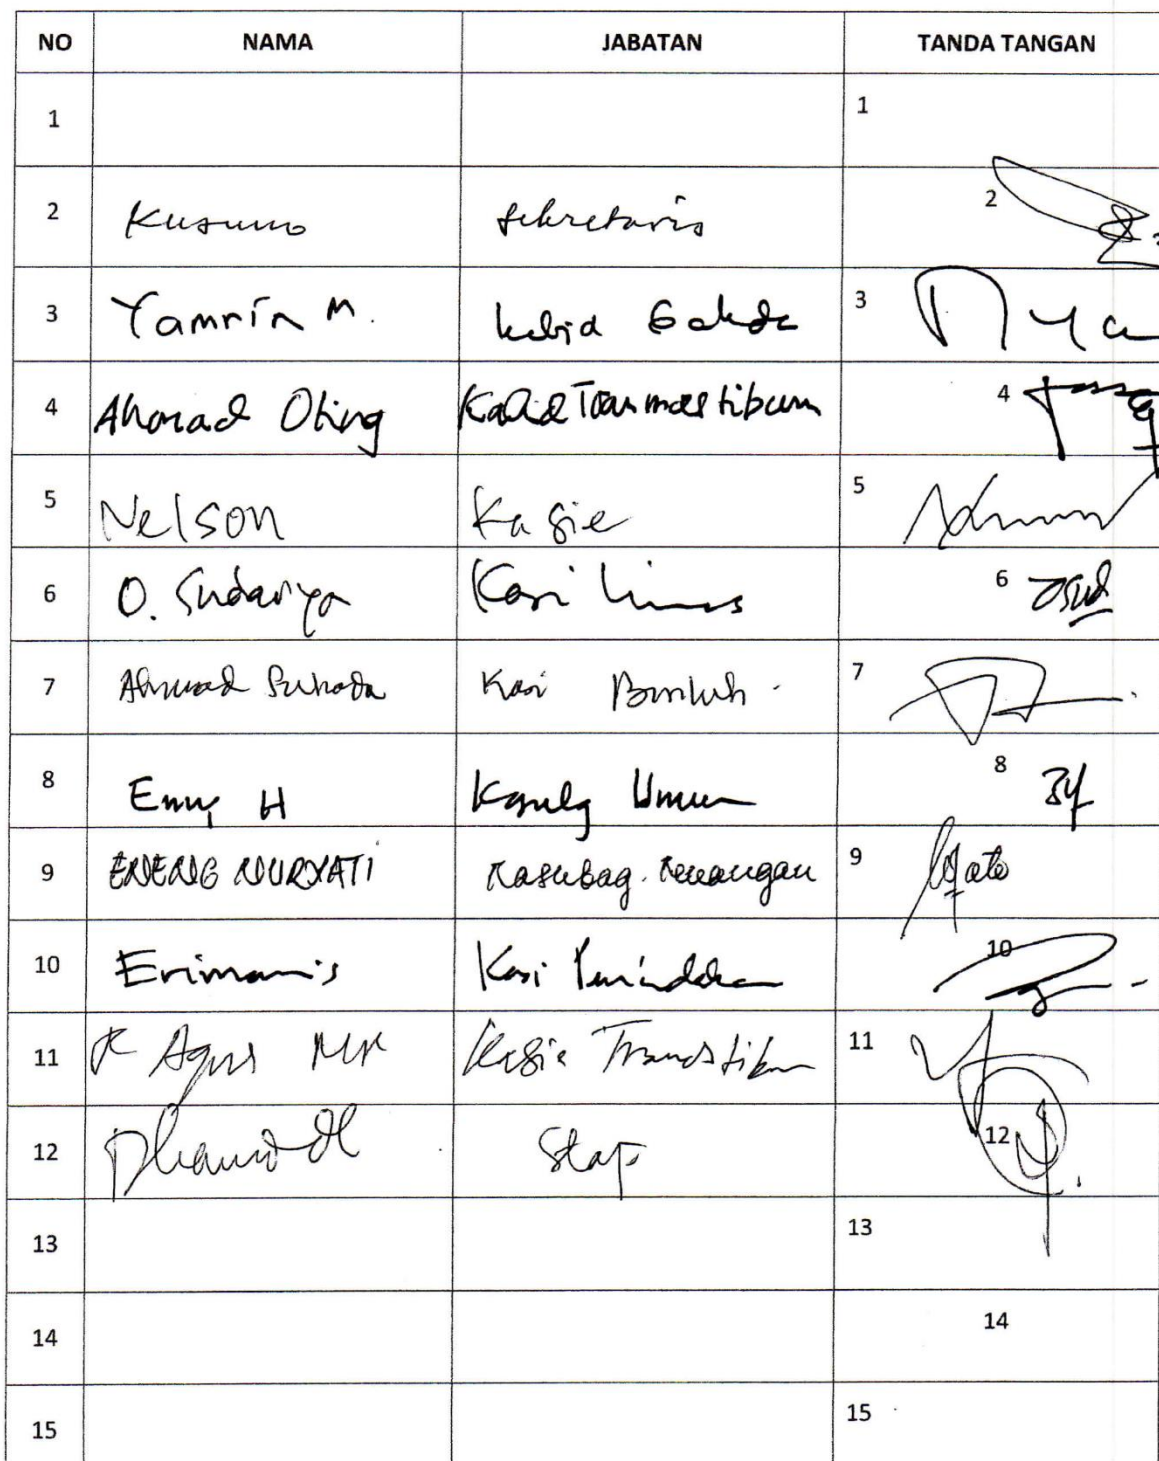 NO NAMA JABATAN TANDA TANGAN
1 1
2 Kusumo Sekretaris 2
3 Yamrin M. Kabid Gakda 3
4 Ahmad Oting Kabid Tranmastibum 4
5 Nelson Kasie 5
6 O. Sudariya Kasi Linmas 6
7 Ahmad Suhada Kasi Binluh 7
8 Enny H Umum 8
9 ENENG NURYATI Kasubag. Keuangan 9
10 Erimanis Kasi 10
11 R Agus Kasie 11
12 Staf 12
13 13
14 14
15 15